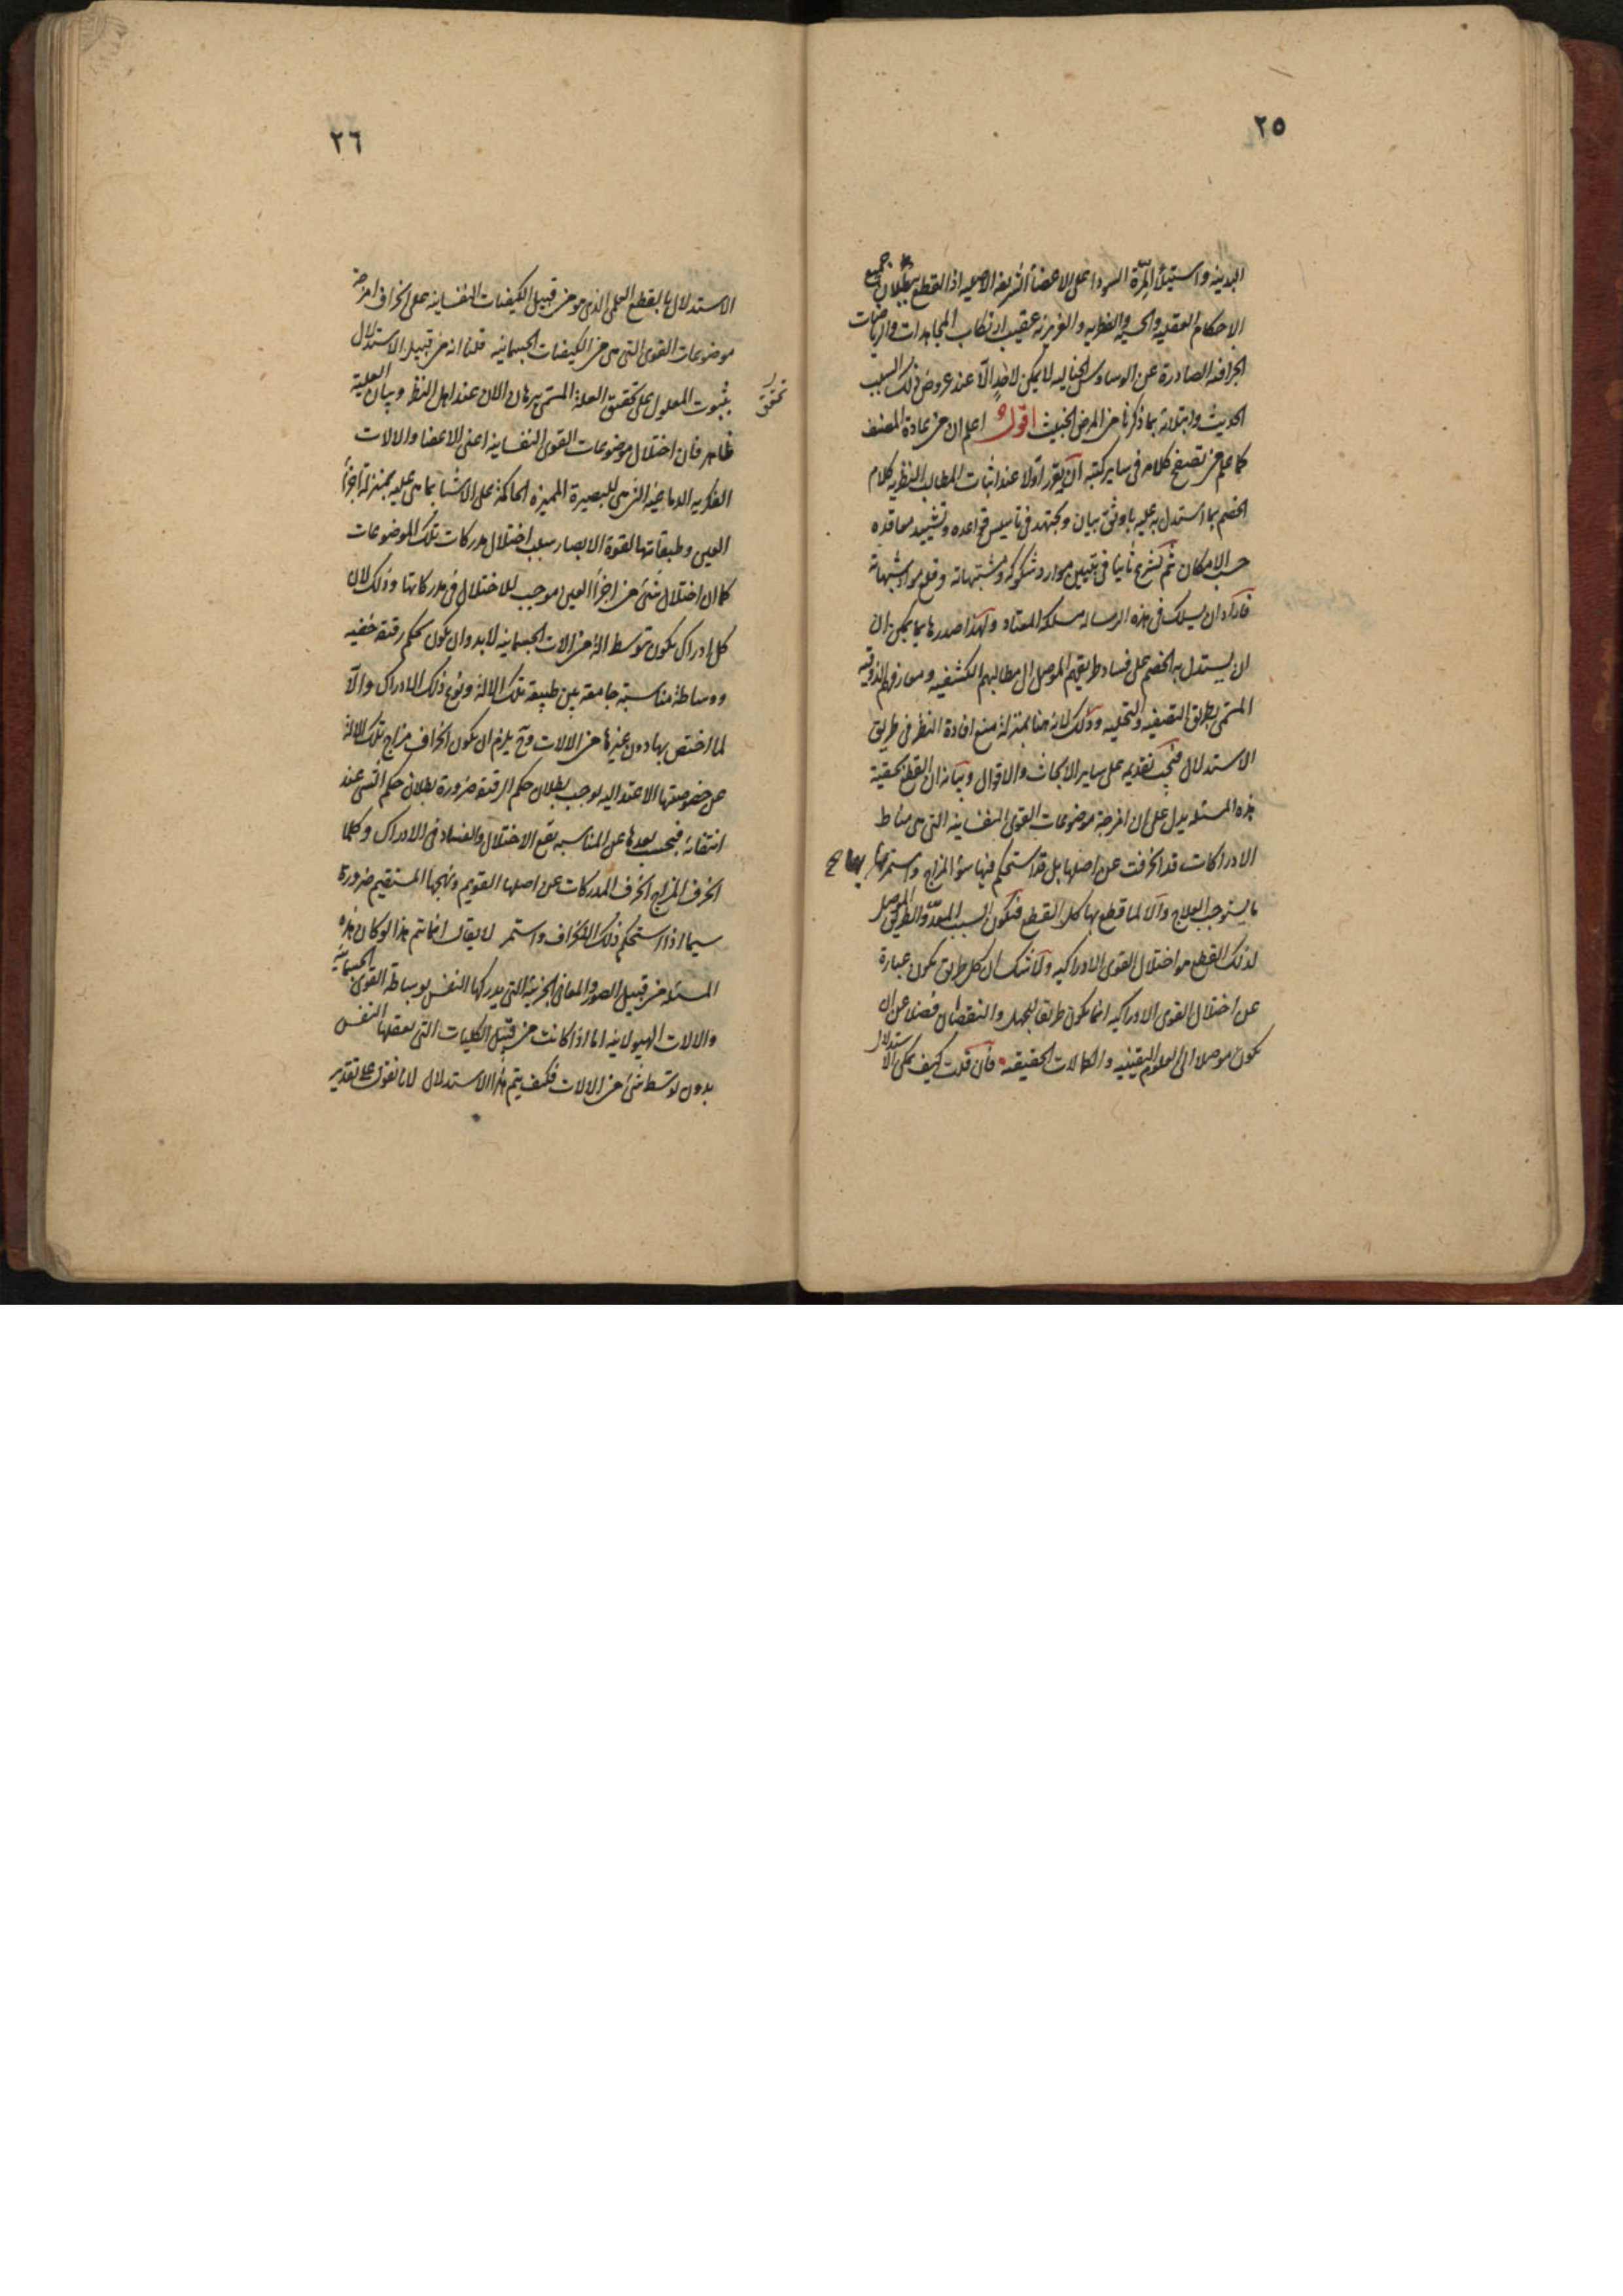 ٢٥
البدنيه واستيلأ المِرّة السودا على الاعضأ الشريفه الاصليه اذ القطع ببطلان جميع
الاحكام العقليه والحسيه والفطريه والغريزيه عقيب ارتكاب المجاهدات والرياضات
الجزافيه الصادرة عن الوساوس الخياليه لا يمكن لاحدٍ الّا عند عروض ذلك السبب
الحديث وابتلائه بما ذكرنا من المرض الخبيث اقول اعلم ان من عادة المصنف
كما علم من تصفح كلامه فى ساير كتبه ان يقرر اولا عند اثبات المطالب النظريه كلام
الخصم بما استدل به عليه باوثق بيان ويجتهد فى تاسيس قواعده وتشييد معاقده
حسب الامكان ثم يشرع ثانيا فى تبيين موارد شكوكه ومشتبهاته وقلع مواد شبهاته
فاراد ان يسلك فى هذه الرساله مسلكه المعتاد ولهذا صدرها بما يمكن ان
ان يستدل به الخصم على فساد طريقهم الموصل الى مطالبهم الكشفيه ومعارفهم الذوقيه
المسمى بطريق التصفيه والتخليه وذلك لانه هنا بمنزلة منع افادة النظر فى طريق
الاستدلال فيجب تقديمه على ساير الابحاث والاقوال وبيانه ان القطع بحقية
هذه المسئله يدل على ان امزجة موضوعات القوى النفسانيه التى هى مناط
الادراكات قد انحرفت عن اصلها بل قد استحكم فيها سؤ المزاج واستمر بها
ما يستوجب العلاج والا لما قطع بها كل القطع فيكون السبب المعدّ والطريق الموصل
لذلك القطع هو اختلال القوى الادراكيه ولا شك ان كل طريق يكون عبارة
عن اختلال القوى الادراكيه انما يكون طريقا للجهل والنقصان فضلا عن ان
يكون موصلا الى العلوم اليقينيه والكمالات الحقيقيه فان قلت كيف يمكن الاستدلال
٢٦
الاستدلال بالقطع العلمى الذى هو من قبيل الكيفيات النفسانيه على انحراف امزجة
موضوعات القوى التى هى من الكيفيات الجسمانيه قلنا انه من قبيل الاستدلال
بثبوت المعلول على تحقيق العلة المسمى ببرهان الان عند اهل النظر وبيان العلية
تحقق
ظاهر فان اختلال موضوعات القوى النفسانيه اعنى الاعضا والالات
الفكريه الدماغيه التى هى للبصيرة المميزه الحاكمة على الاشيا بما هى عليه بمنزلة اجزأ
العين وطبقاتها لقوة الابصار سبب اختلال مدركات تلك الموضوعات
كما ان اختلال شئ من اجزأ العين موجب للاختلال فى مدركاتها وذلك لان
كل ادراك يكون بتوسط الة من الالات الجسمانيه لابد وان يكون بحكم رقيقة خفيه
ووساطة مناسبة جامعة بين طبيعة تلك الالة ونوع ذلك الادراك والّا
لما اختص بها دون غيرها من الالات وح يلزم ان يكون انحراف مزاج تلك الالة
عن خصوصيتها الاعتداليه يوجب بطلان حكم الرقيقة ضرورة بطلان حكم الشئ عند
انتفائه فبحسب بعدها عن المناسبه يقع الاختلال والفساد فى الادراك وكلما
انحرف المزاج انحرف المدركات عن اصلها القويم ونهجها المستقيم ضرورة
سيما اذا استحكم ذلك الانحراف واستمر لا يقال انما يتم هذا لو كان هذه
المسئله من قبيل الصور والمعانى الجزئية التى يدركها النفس بوساطة القوى الجسمانيه
والالات الهيولانيه اما اذا كانت من قبيل الكليات التى تعقلها النفس
بدون توسط شئ من الالات فكيف يتم هذا الاستدلال لانا نقول على تقدير